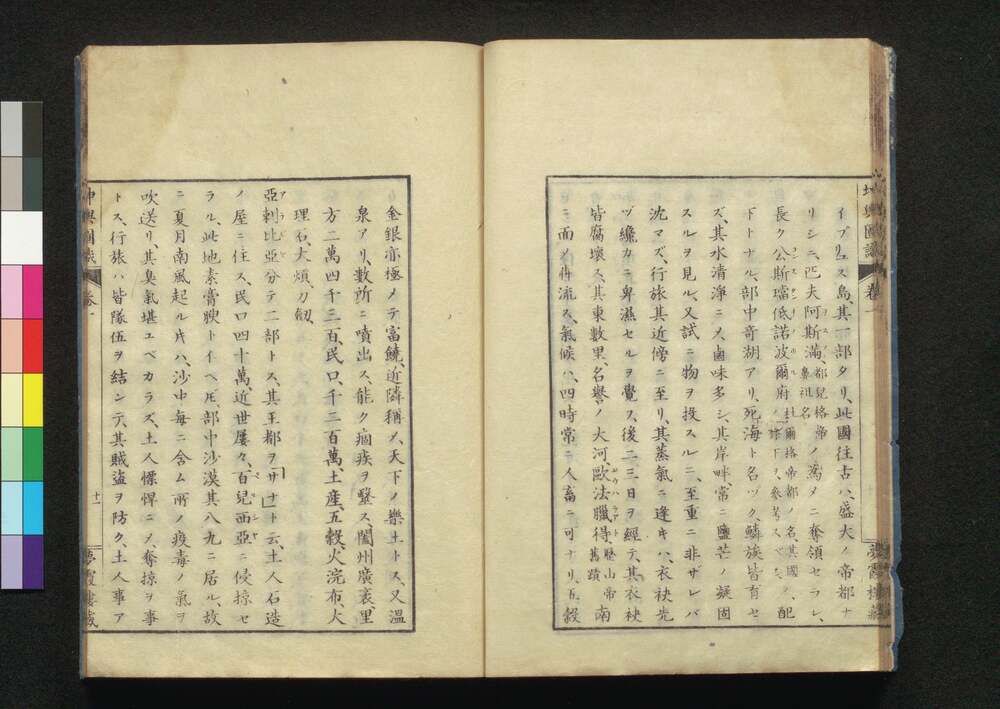 坤輿圖識 卷一
イプリュス島、其一部タリ、此國往古ハ、盛大ノ帝都ナ
リシニ、匹夫阿斯滿、都兒格帝ノ魯祖名ノ爲メニ奪領セラレ、
長ク公斯璫低諾波爾府、都爾格帝都ノ名、其國ノ條下ヲ、參考スベシ、ノ配
下トナル、部中奇湖アリ、死海ト名ヅク、鱗族皆育セ
ズ、其水清淨ニメ鹵味多シ、其岸畔、常ニ鹽芒ノ凝固
スルヲ見ル、又試ニ物ヲ投スルニ、至重ニ非ザレバ
沈マズ、行旅其近傍ニ至リ、其蒸氣ニ逢キハ、衣袂先
ヅ纔カニ卑濕セルヲ覺ス、後二三日ヲ經テ、其衣袂
皆腐壞ス、其東數里、名譽ノ大河、歐法臘得、歷山帝舊蹟南
ニ面メ流ス、氣候ハ、四時常ニ人畜ニ可ナリ、五穀
夢霞樓藏
金銀亦極メテ富饒、近隣稱メ、天下ノ樂土トス、又溫
泉アリ、數所ニ噴出ス、能ク痼疾ヲ醫ス、闔州廣袤、里
方二萬四千三百、民口、千二百萬、土産、五穀、火浣布、大
理石、大煩、刀劒、
亞剌比亞分テ二部トス、其王都ヲ「サナ」ト云、土人石造
ノ屋ニ住ス、民口四十萬、近世屢々、百兒西亞ニ侵掠セ
ラル、此地素膏腴トイヘ𪜈、部中沙漠其八九ニ居ル、故
ニ夏月南風起ル𪜈ハ、沙中每ニ含ム所ノ疫毒ノ氣ヲ
吹送リ、其臭氣堪ユベカラズ、土人慓悍ニメ、奪掠ヲ事
トス、行旅ハ皆隊伍ヲ結ンデ、其賊盜ヲ防ク、土人事ア
坤輿圖識 卷一 十二 夢霞樓藏